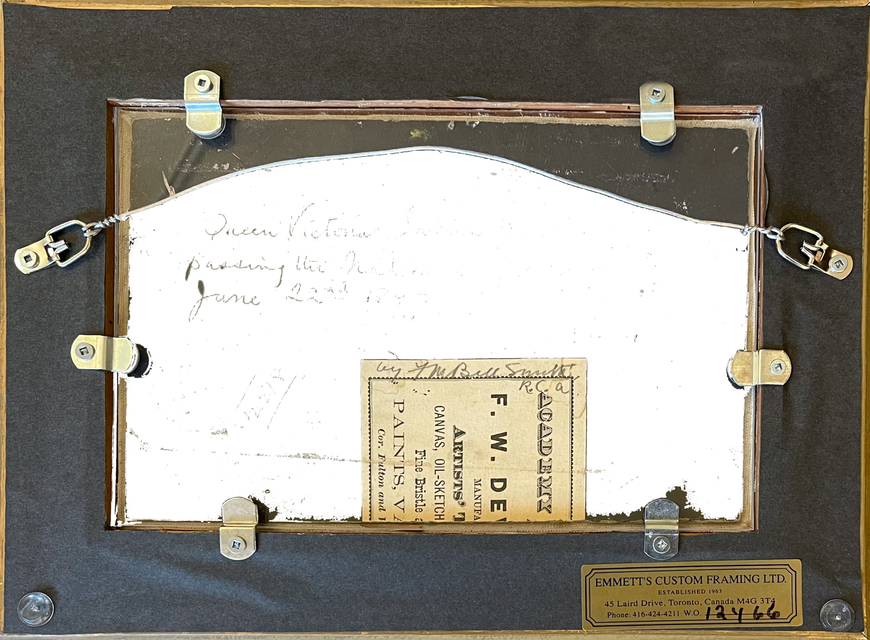 Queen Victoria
passing the
June 22nd
by F M Bell Smith
R.C.A
ACADEMY
F. W. DEV
MANUFA
ARTISTS' T
CANVAS, OIL-SKETCH
Fine Bristle
PAINTS, VA
Cor. Fulton and
EMMETT'S CUSTOM FRAMING LTD.
ESTABLISHED 1963
45 Laird Drive, Toronto, Canada M4G 3T4
Phone: 416-424-4211 W.O. 12466